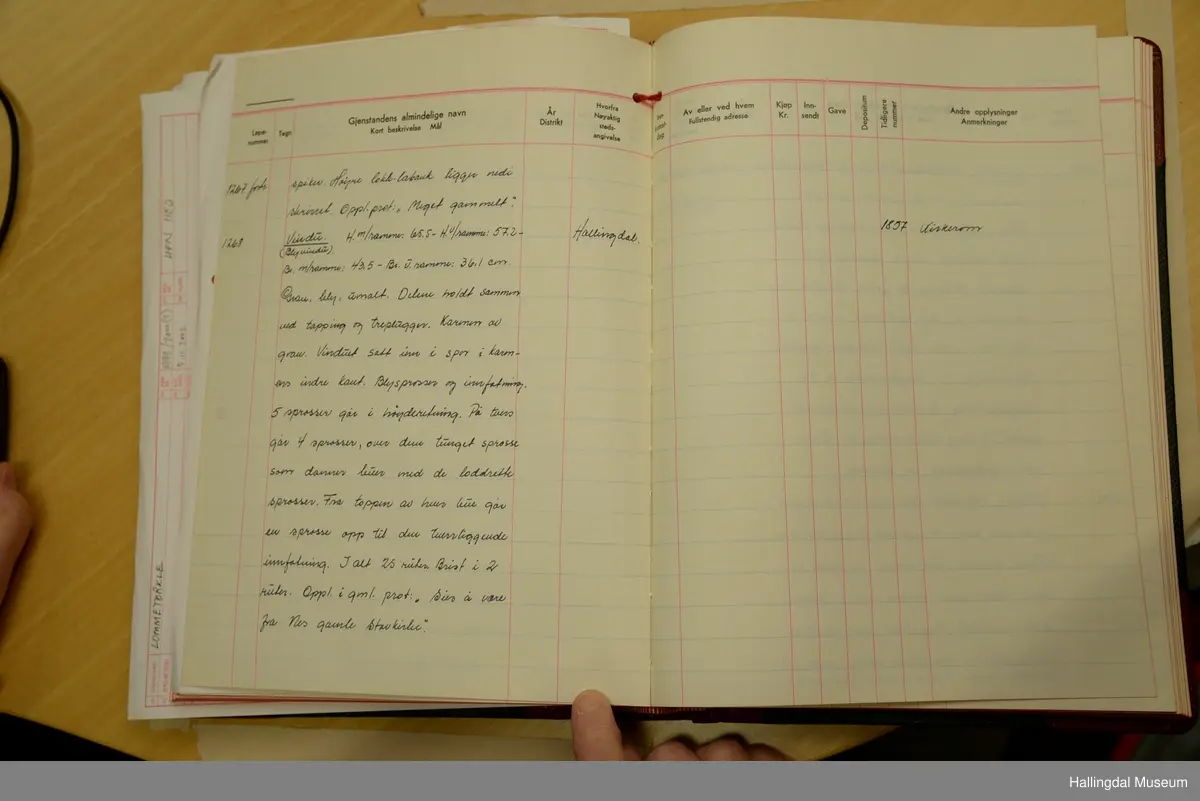 Løpe-
nummer
Tegn
Gjenstandens almindelige navn
Kort beskrivelse Mål
År
Distrikt
Hvorfra
Nøyaktig
steds-
angivelse
Av eller ved hvem
Fullstendig adresse
Kjøp
Kr.
Inn-
sendt
Gave
Depositum
Tidligere
nummer
Andre opplysninger
Anmerkninger
1267 forts. spiker. Høyre lokk-labank ligger nedi
skrinet. Oppl. prot: "Meget gammelt".
1268 Vindu. H. m/ramme: 65.5 - H. u/ramme: 57.2 - Hallingdal. 1857 Kiskerom
(Blyvindu).
Br. m/ramme: 43.5 - Br. u. ramme: 36.1 cm.
Gran, bly, umalt. Delene holdt sammen
ved tapping og treplugger. Karmen av
gran. Vinduet satt inn i spor i karm-
ens indre kant. Blysprosser og innfatning.
5 sprosser går i høyderetning. På tvers
går 4 sprosser, over dem tunget sprosse
som danner buer med de loddrette
sprosser. Fra toppen av hver bue går
en sprosse opp til den tverrliggende
innfatning. I alt 25 ruter. Brist i 2
ruter. Oppl. i gml. prot: "Sies å være
fra Nes gamle Stavkirke".
LOMMETØRKLE
Hallingdal Museum